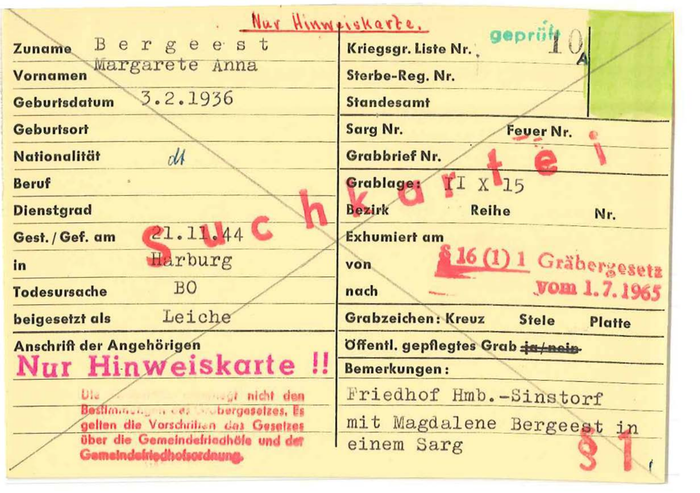 Nur Hinweiskarte.
geprüft 10 A
Zuname Bergeest
Vornamen Margarete Anna
Geburtsdatum 3.2.1936
Geburtsort
Nationalität dt
Beruf
Dienstgrad
Gest./Gef. am 21.11.44
in Harburg
Todesursache BO
beigesetzt als Leiche
Anschrift der Angehörigen
Nur Hinweiskarte !!
Die nicht den
Bestimmungen des Gräbergesetzes. Es
gelten die Vorschriften des Gesetzes
über die Gemeindefriedhöfe und der
Gemeindefriedhofsordnung.
Suchkartei
Kriegsgr. Liste Nr.
Sterbe-Reg. Nr.
Standesamt
Sarg Nr. Feuer Nr.
Grabbrief Nr.
Grablage: II X 15
Bezirk Reihe Nr.
Exhumiert am
von
nach
§ 16 (1) 1 Gräbergesetz
vom 1.7.1965
Grabzeichen: Kreuz Stele Platte
Öffentl. gepflegtes Grab ja/nein
Bemerkungen:
Friedhof Hmb.-Sinstorf
mit Magdalene Bergeest in
einem Sarg
§ 1